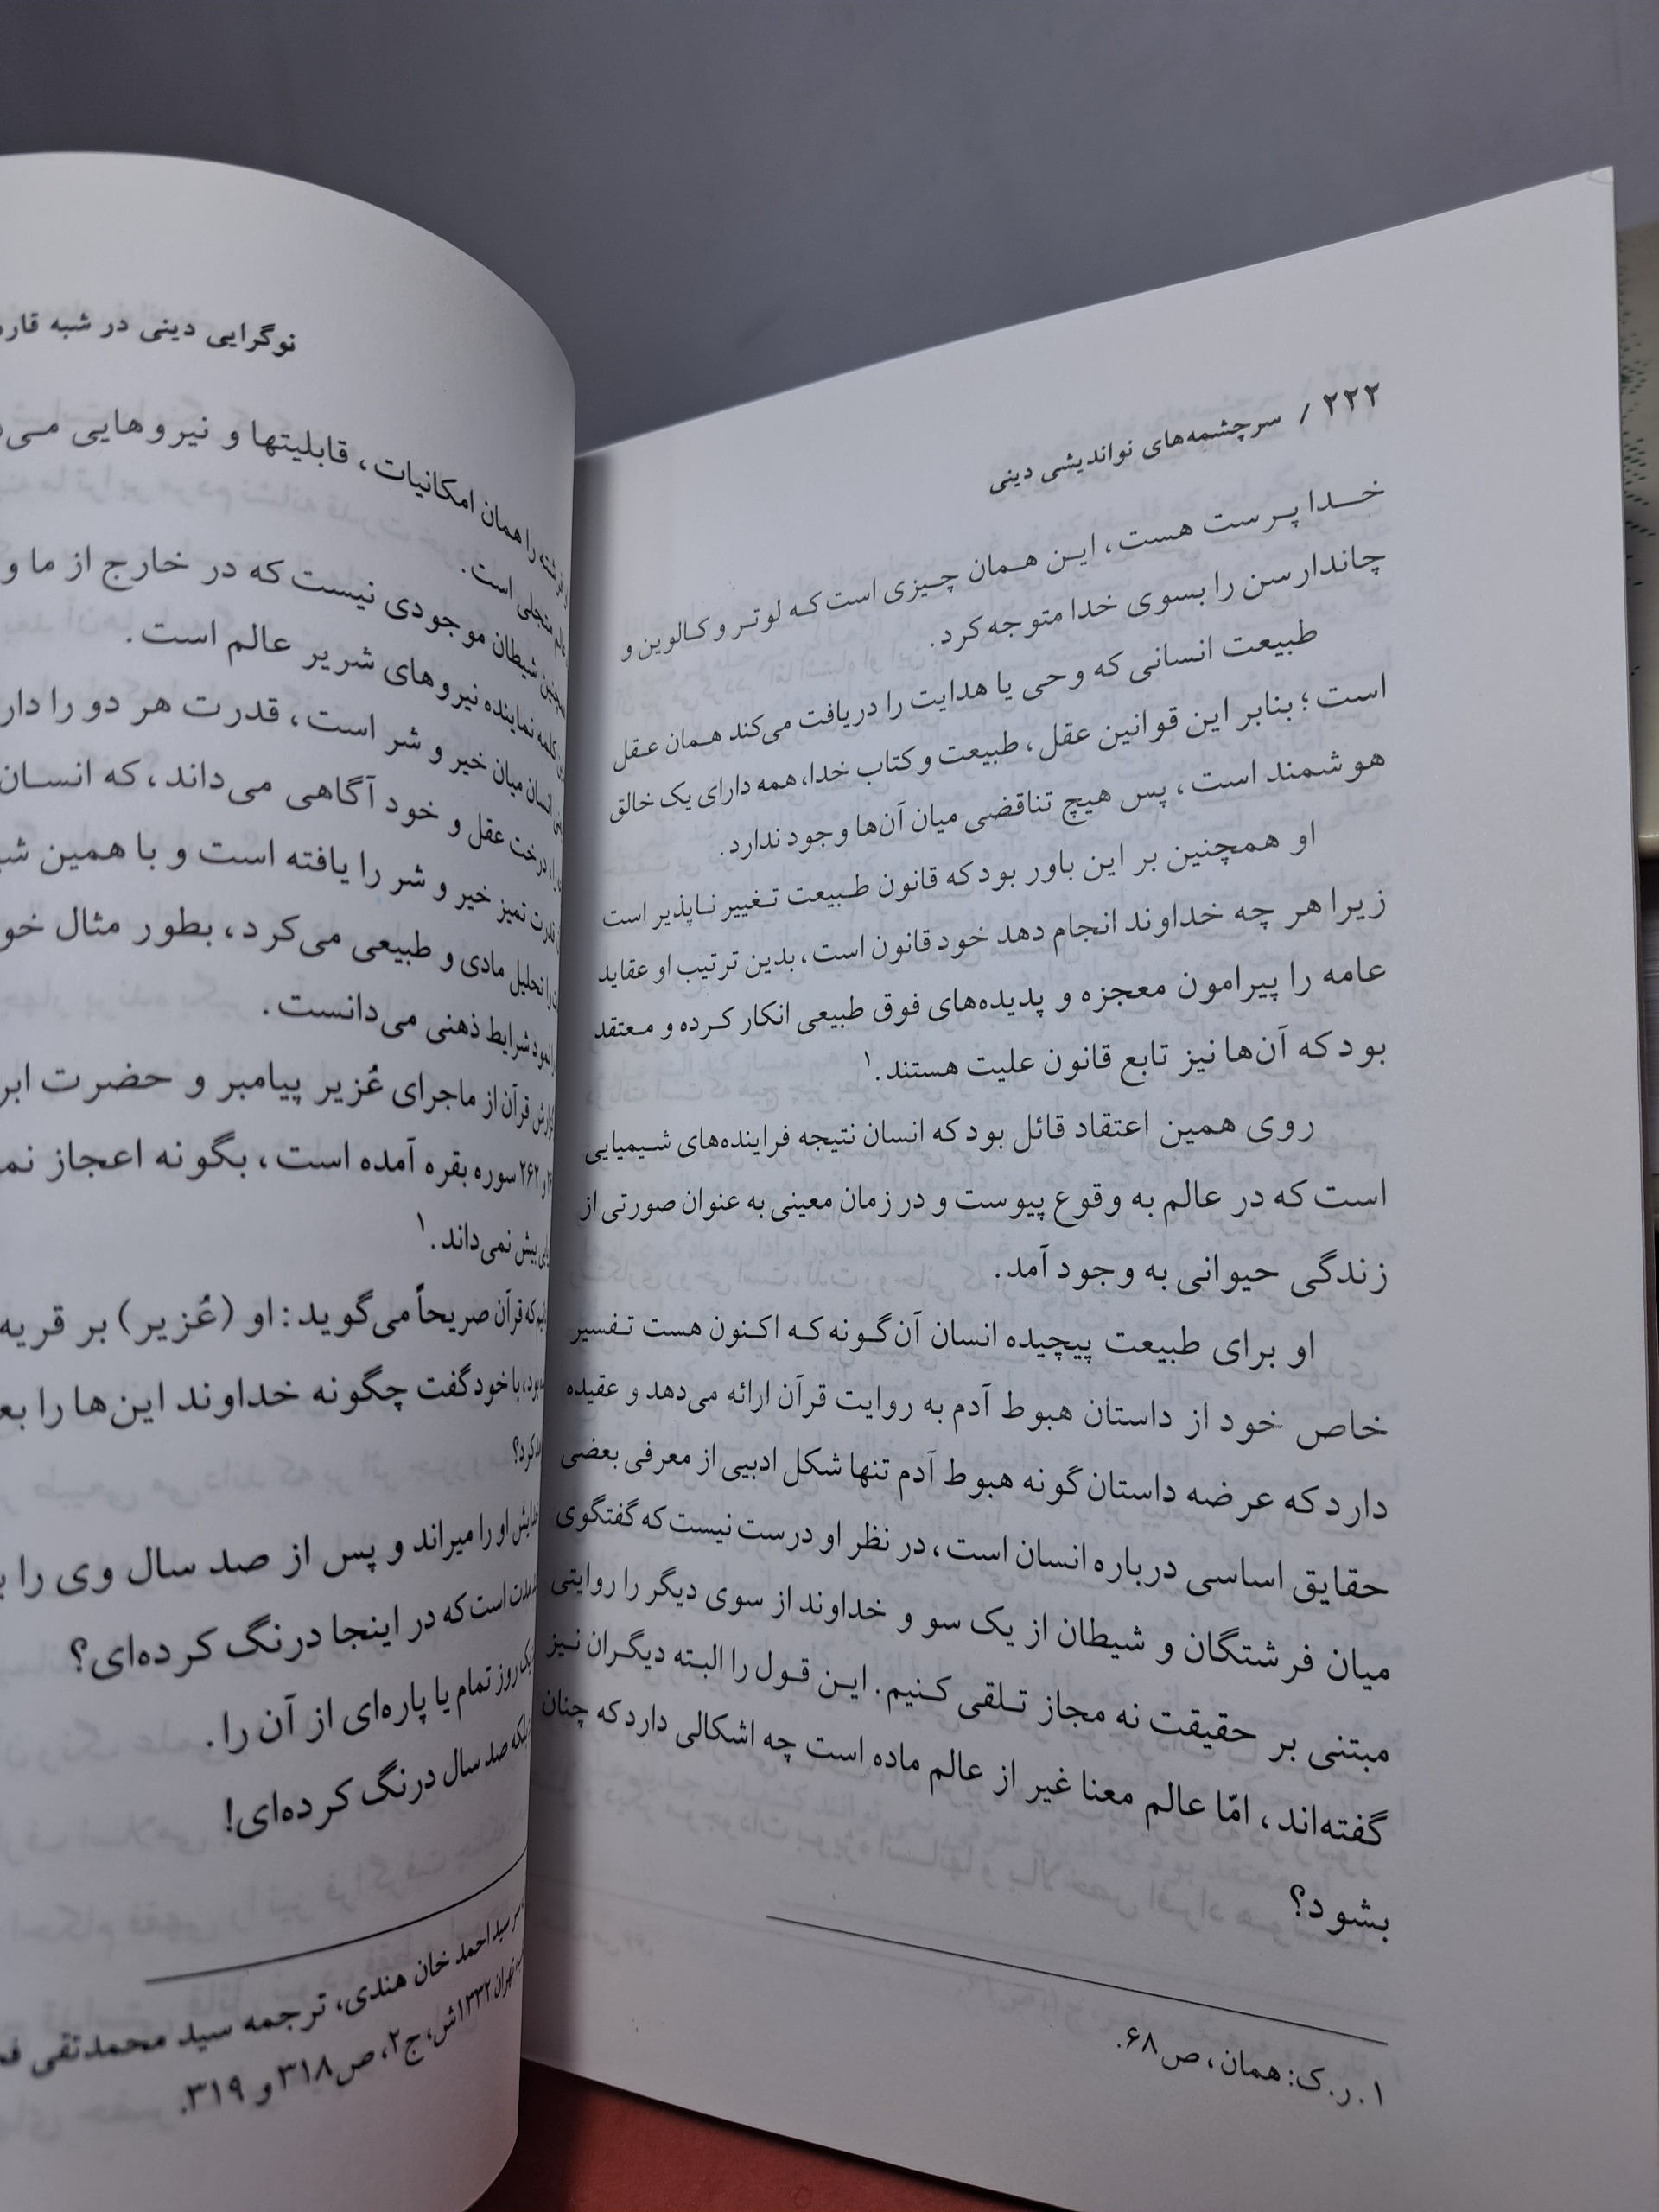 ۲۲۲ / سرچشمه‌های نواندیشی دینی
خدا پرست هست، این همان چیزی است که لوتر و کالوین و
چاندارسن را بسوی خدا متوجه کرد.
طبیعت انسانی که وحی یا هدایت را دریافت می‌کند همان عقل
است؛ بنابر این قوانین عقل، طبیعت و کتاب خدا، همه دارای یک خالق
هوشمند است، پس هیچ تناقضی میان آن‌ها وجود ندارد.
او همچنین بر این باور بود که قانون طبیعت تغییر ناپذیر است
زیرا هر چه خداوند انجام دهد خود قانون است، بدین ترتیب او عقاید
عامه را پیرامون معجزه و پدیده‌های فوق طبیعی انکار کرده و معتقد
بود که آن‌ها نیز تابع قانون علیت هستند.۱
روی همین اعتقاد قائل بود که انسان نتیجه فراینده‌های شیمیایی
است که در عالم به وقوع پیوست و در زمان معینی به عنوان صورتی از
زندگی حیوانی به وجود آمد.
او برای طبیعت پیچیده انسان آن‌گونه که اکنون هست تفسیر
خاص خود از داستان هبوط آدم به روایت قرآن ارائه می‌دهد و عقیده
دارد که عرضه داستان‌گونه هبوط آدم تنها شکل ادبیی از معرفی بعضی
حقایق اساسی درباره انسان است، در نظر او درست نیست که گفتگوی
میان فرشتگان و شیطان از یک سو و خداوند از سوی دیگر را روایتی
مبتنی بر حقیقت نه مجاز تلقی کنیم. این قول را البته دیگران نیز
گفته‌اند، امّا عالم معنا غیر از عالم ماده است چه اشکالی دارد که چنان
بشود؟
۱. ر.ک: همان، ص۶۸.
نوگرایی دینی در شبه قاره
را همان امکانیات، قابلیتها و نیروهایی
متجلی است.
شیطان موجودی نیست که در خارج از ما و
کلمه نماینده نیروهای شریر عالم است.
انسان میان خیر و شر است، قدرت هر دو را
درخت عقل و خود آگاهی می‌داند، که انسان
قدرت تمیز خیر و شر را یافته است و با همین
را تحلیل مادی و طبیعی می‌کرد، بطور مثال
شرایط ذهنی می‌دانست.
قرآن از ماجرای عُزیر پیامبر و حضرت
و ۲۶۲ سوره بقره آمده است، بگونه اعجاز
بیش نمی‌داند.۱
که قرآن صریحاً می‌گوید: او (عُزیر) بر قریه
با خود گفت چگونه خداوند این‌ها را
کرد؟
او را میراند و پس از صد سال وی را
است که در اینجا درنگ کرده‌ای؟
یک روز تمام یا پاره‌ای از آن را.
بلکه صد سال درنگ کرده‌ای!
سر سید احمد خان هندی، ترجمه سید محمدتقی
تهران ۱۳۳۲ش، ج۲، ص۳۱۸ و ۳۱۹.